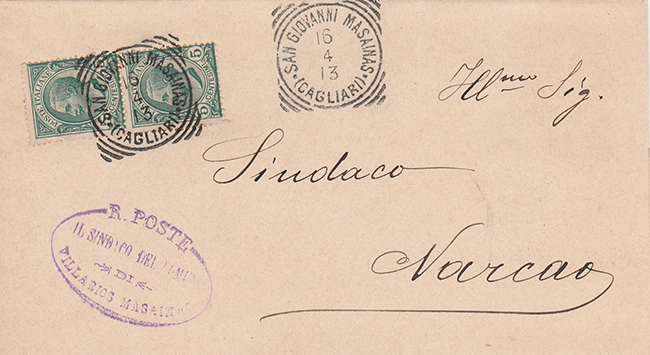 SAN GIOVANNI MASAINAS
16
4
13
(CAGLIARI)
POSTE ITALIANE
5
SAN GIOVANNI MASAINAS
(CAGLIARI)
Ill.mo Sig.
Sindaco
Narcao
R. POSTE
IL SINDACO DEL
DI
VILLARIOS MASAINAS